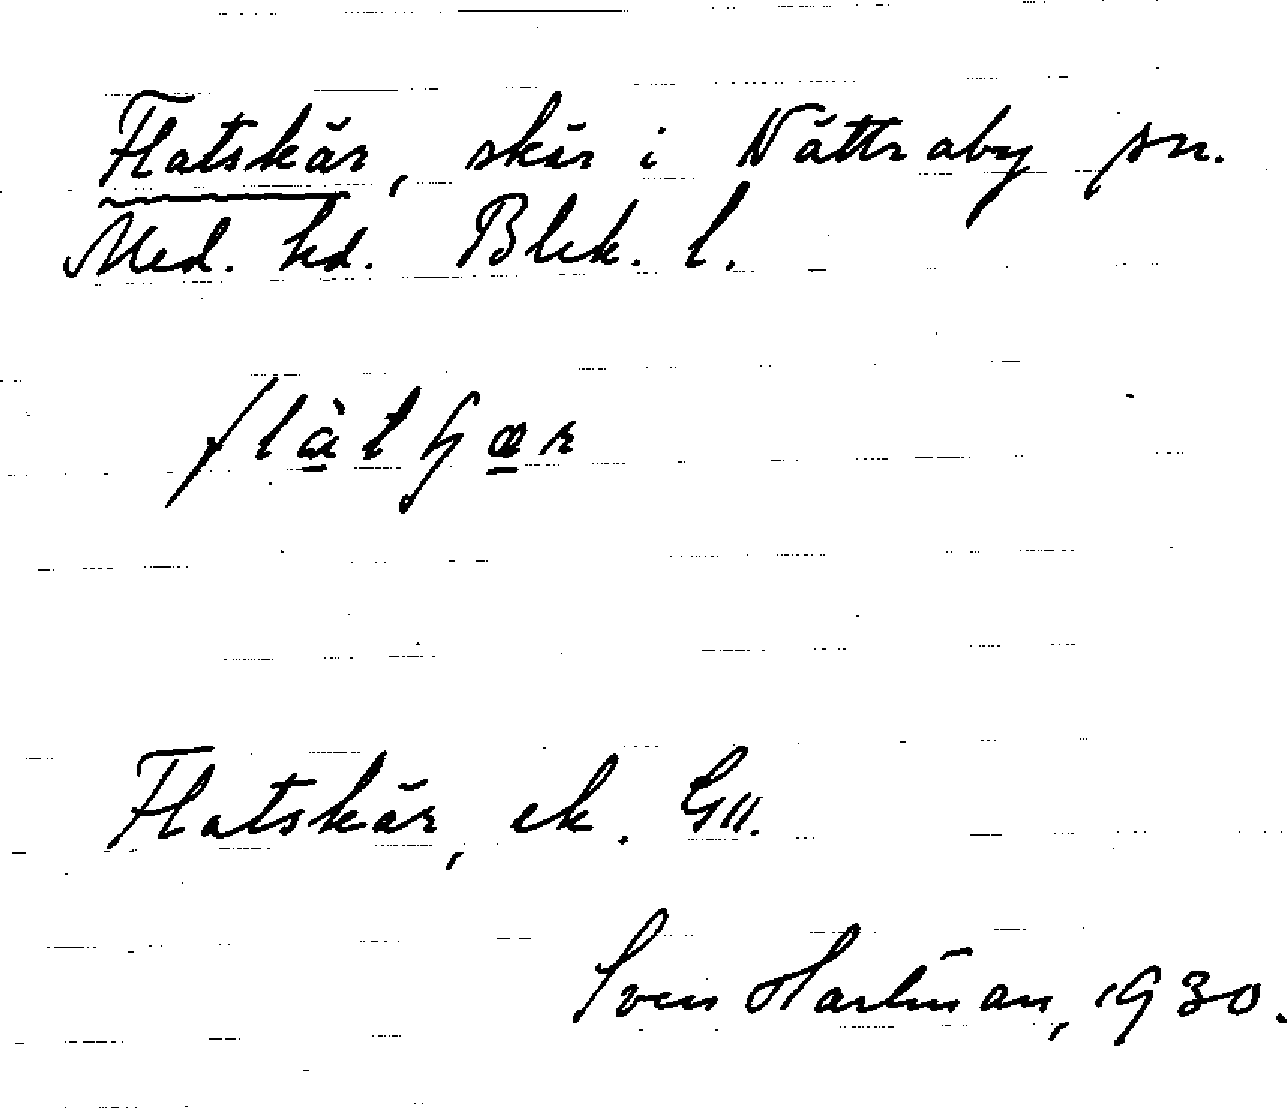 Flatskär, skär i Nättraby sn.
Med. hd. Blek. l.
flàtʃær
Flatskär, ek.
Sven Hartman, 1930.